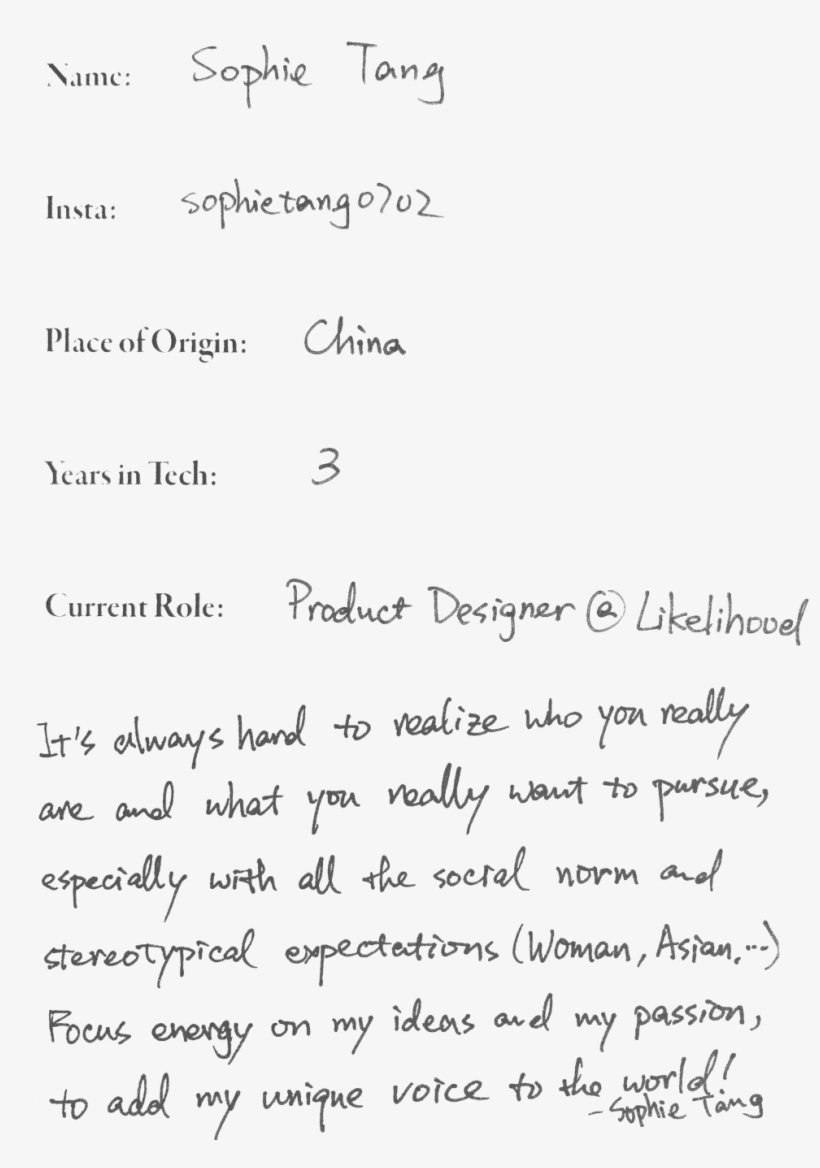 Name: Sophie Tang
Insta: sophietang0702
Place of Origin: China
Years in Tech: 3
Current Role: Product Designer @ Likelihood
It's always hard to realize who you really
are and what you really want to pursue,
especially with all the social norm and
stereotypical expectations (Woman, Asian,...)
Focus energy on my ideas and my passion,
to add my unique voice to the world!
- Sophie Tang